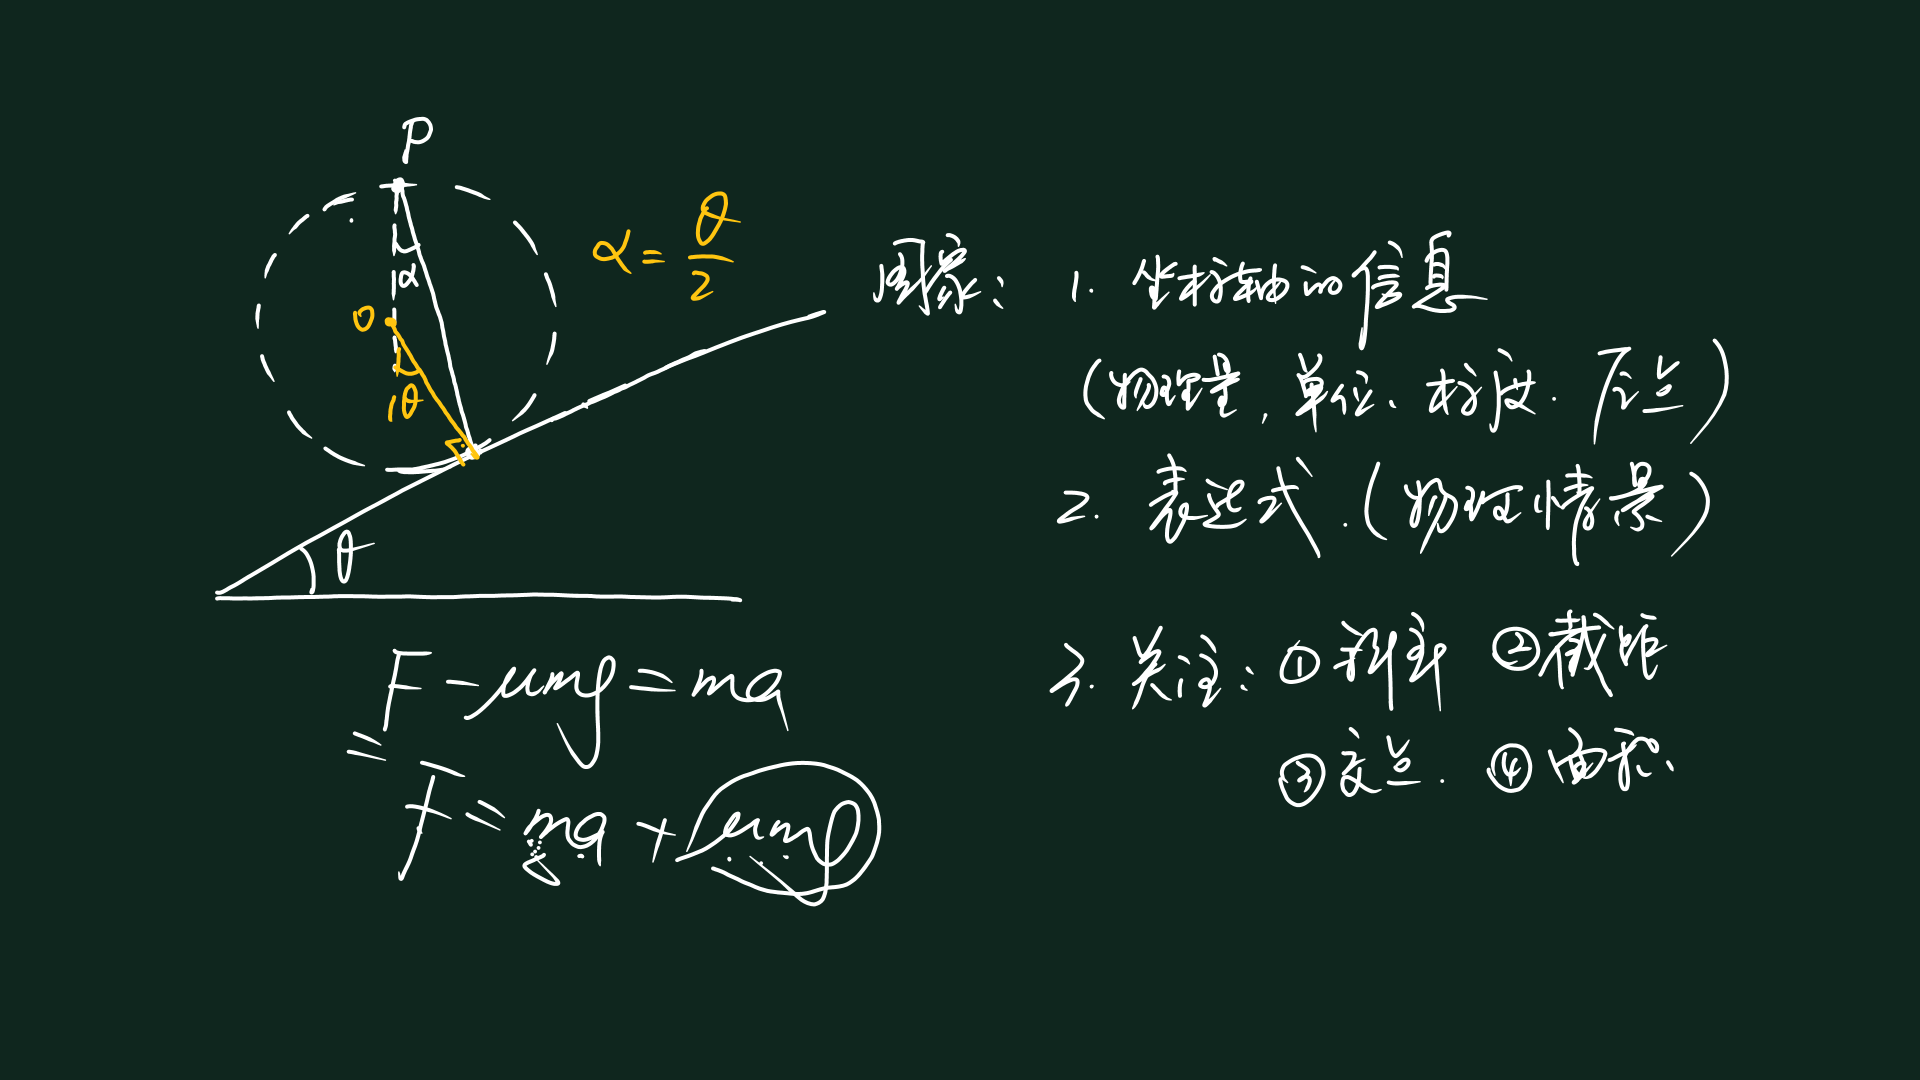 P
α = θ/2
α
O
θ
θ
F - μmg = ma
= F = ma + μmg
图象: 1. 坐标轴的信息
(物理量, 单位、标度. 原点)
2. 表达式.(物理情景)
3. 关注: ①斜率 ②截距
③交点. ④面积.